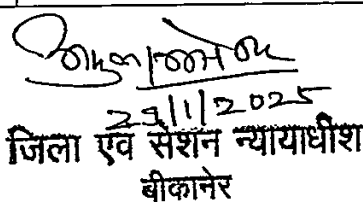 23/1/2025
जिला एवं सेशन न्यायाधीश
बीकानेर